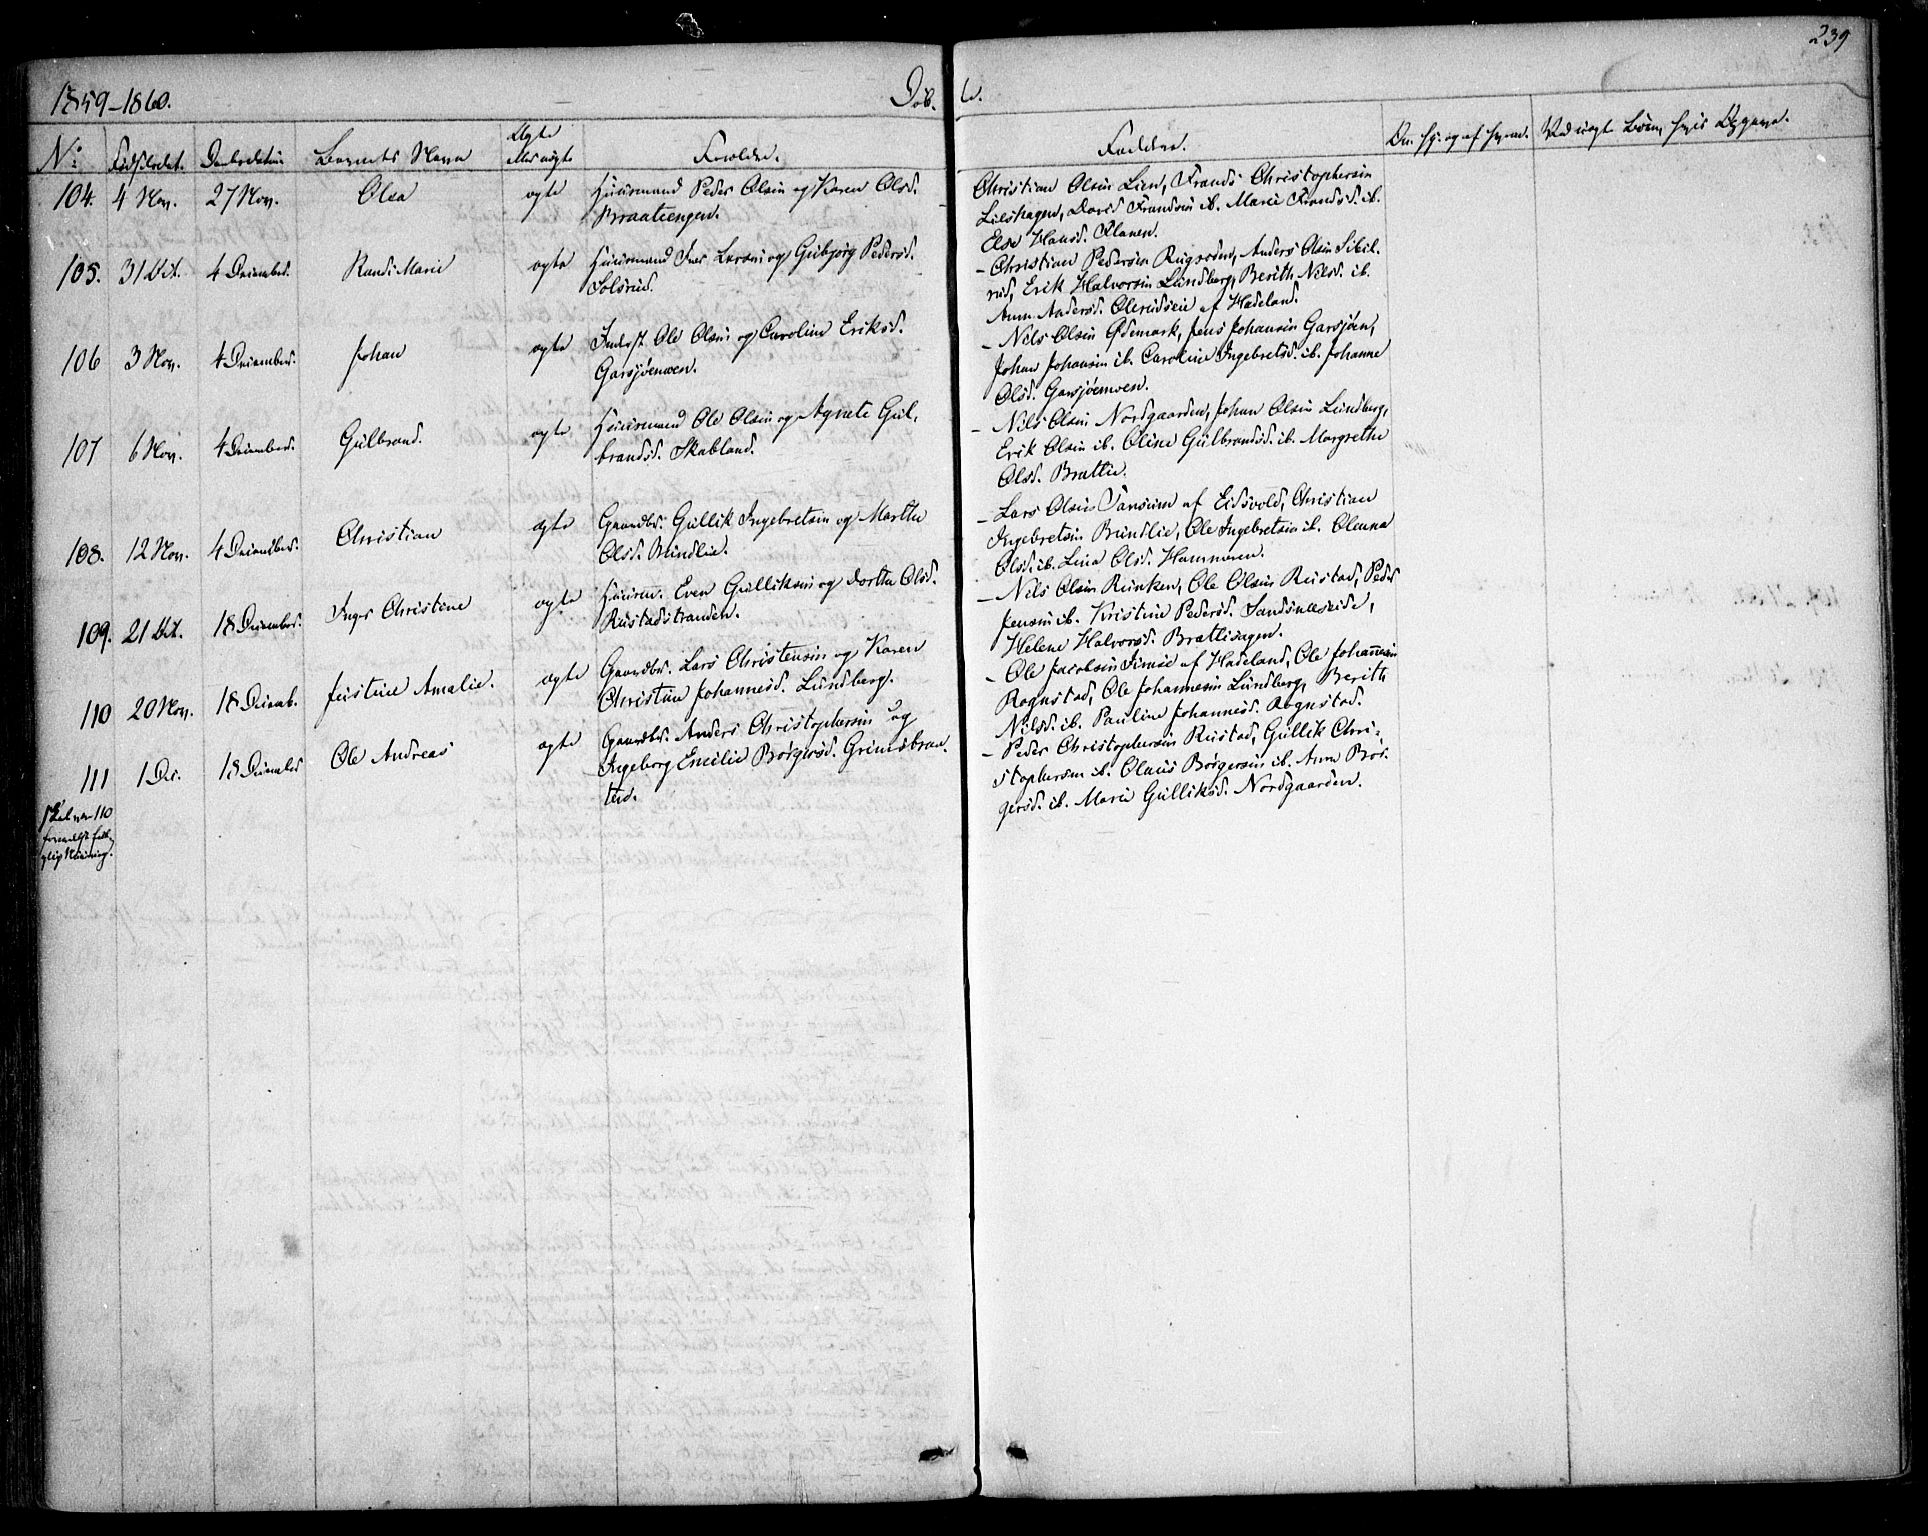 239
1859–1860.
Døb
te.
No Fødselsdat. Daabsdatum Barnets Navn Ægte eller uægte Forældre. Faddere. Ved uægte Børn, hvis Opgave.
104. 4 Nov. 27 Nov. Olea ægte Huusmand Peder Olsen og Karen Olsd.
Braateengen.
Christian Olsen Lien, Frands Christophersen
Lieshagen, David Frandsen ib. Marie Frandsd. ib.
Else Hansd. Flanen.
105. 31 Oct. 4 December. Randi Marie ægte Huusmand Iver Larsen og Gubjørg Pedersd.
Solsrud.
– Christian Pedersen Rugsoden, Anders Olsen Sibil-
rud, Erik Halvorsen Lundberg, Berith Nilsd. ib.
Anne Andersd. Olerudseie af Hadeland.
106 3 Nov. 4 December. Johan ægte Inderst Ole Olsen og Caroline Eriksd.
Garsjøenoen.
– Nils Olsen Ødemark, Jens Johansen Garsjøen,
Johan Johansen ib. Caroline Ingebretsd. ib. Johanne
Olsd. Garsjøenoen.
107 6 Nov. 4 December. Gulbrand. ægte Huusmand Ole Olsen og Agnete Gul-
brandsd. Skabland.
– Nils Olsen Nordgaarden, Johan Olsen Lundberg,
Erik Olsen ib. Oline Gulbrandsd. ib. Margrethe
Olsd. Brattie.
108. 12 Nov. 4 December. Christian ægte Gaardbr. Gullik Ingebretsen og Marthe
Olsd. Bundlie.
– Lars Olsen Tansum af Eidsvold, Christian
Ingebretsen Bundlie, Ole Ingebretsen ib. Oleana
Olsd. ib. Lina Olsd. Hammeren.
109. 21 Oct. 18 December. Inger Christine ægte Huusm. Even Gulliksen og Dorthe Olsd.
Rustadstranden.
– Nils Olsen Runken, Ole Olsen Rustad, Peder
Jensen ib. Kristine Pedersd. Sandsnesseide,
Helene Halvorsd. Brattisagen.
110 20 Nov. 18 Decemb. Justine Amalie. ægte Gaardbr. Lars Christensen og Karen
Christine Johannesd. Lundberg.
– Ole Jacobsen Simoe af Hadeland, Ole Johannesen
Rognstad, Ole Johannesen Lundberg, Berith
Nilsd. ib. Pauline Johannesd. Rognstad.
111 1 Dec. 18 December Ole Andreas ægte Gaardbr. Anders Christophersen og
Ingeborg Emilie Børgersd. Grimsbraa-
ten.
– Peder Christophersen Rustad, Gullik Chri-
stophersen ib. Olaus Børgersen ib. Anne Bør-
gersd. ib. Marie Gulliksd. Nordgaarden.
skal være 110